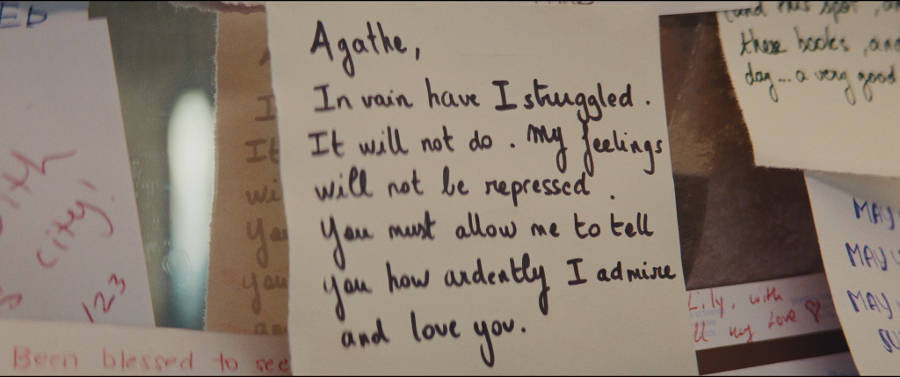 city,
123
Been blessed to see
Agathe,
In vain have I struggled.
It will not do. My feelings
will not be repressed.
You must allow me to tell
you how ardently I admire
and love you.
and this spot, an
these books, and
day... a very good
Lily, with
ll my love ♡
MAY
MAY
MAY